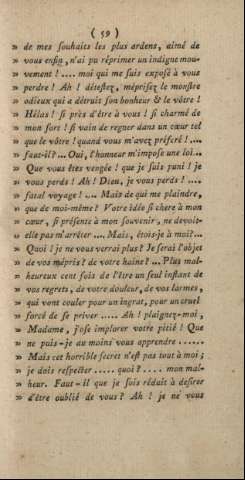 ( 59 )
» de mes souhaits les plus ardens, aimé de
» vous enfin, n'ai pu réprimer un indigne mou-
» vement ! .... moi qui me suis exposé à vous
» perdre ! Ah ! détestez, méprisez le monstre
» odieux qui a détruit son bonheur & le vôtre !
» Hélas ! si près d'être à vous ! si charmé de
» mon sort ! si vain de regner dans un cœur tel
» que le vôtre ! quand vous m'avez préféré ! ....
» faut-il ? ... Oui, l'honneur m'impose une loi...
» Que vous êtes vengée ! que je suis puni ! je
» vous perds ! Ah ! Dieu, je vous perds ! ....
» fatal voyage ! .... Mais de qui me plaindre,
» que de moi-même ? Votre idée si chere à mon
» cœur, si présente à mon souvenir, ne devoit-
» elle pas m'arrêter .... Mais, étois-je à moi ? ...
» Quoi ! je ne vous verrai plus ? Je serai l'objet
» de vos mépris ? de votre haine ? ... Plus mal-
» heureux cent fois de l'être un seul instant de
» vos regrets, de votre douleur, de vos larmes,
» qui vont couler pour un ingrat, pour un cruel
» forcé de se priver ..... Ah ! plaignez-moi,
» Madame, j'ose implorer votre pitié ! Que
» ne puis-je au moins vous apprendre ......
» Mais cet horrible secret n'est pas tout à moi ;
» je dois respecter ..... quoi ? .... mon mal-
» heur. Faut-il que je sois réduit à desirer
» d'être oublié de vous ? Ah ! je ne vous